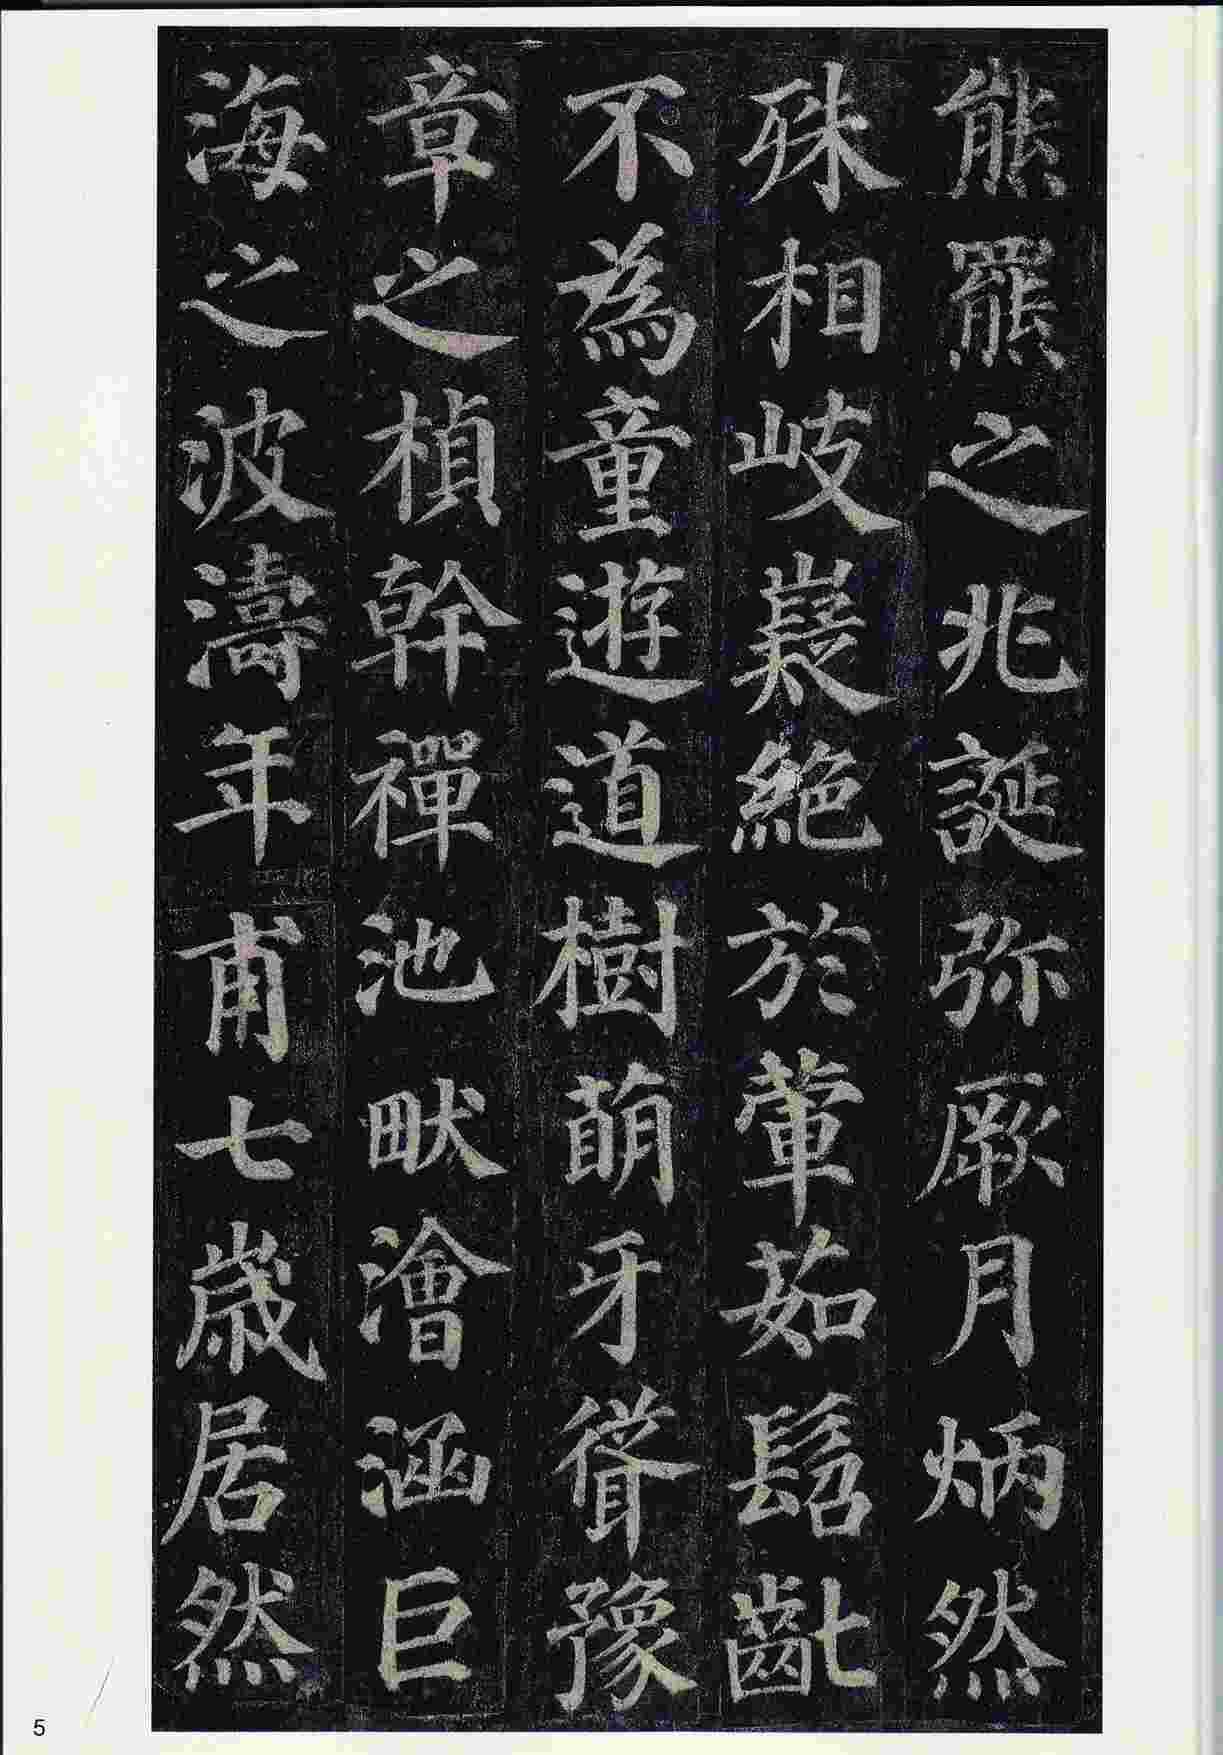 熊羆之兆誕弥厥月炳然
殊相岐嶷絶於葷茹髫齔
不為童遊道樹萌牙聳豫
章之楨幹禪池畎澮涵巨
海之波濤年甫七歲居然
5